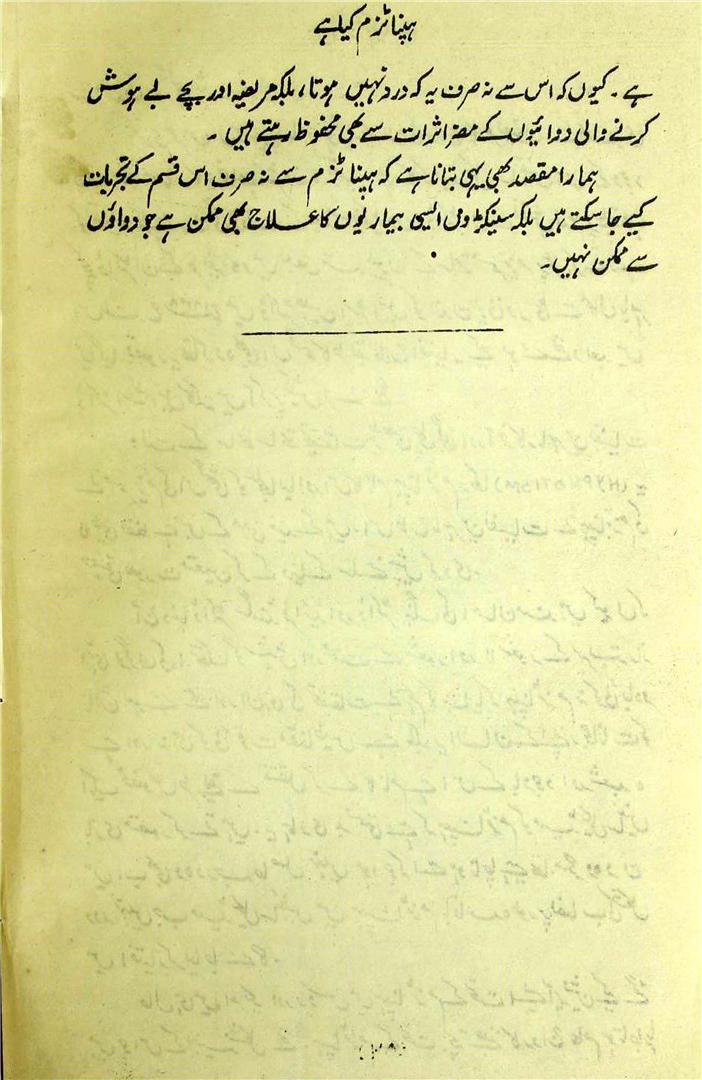 ہپناٹزم کیا ہے
ہے۔ کیوں کہ اس سے نہ صرف یہ کہ درد نہیں ہوتا، بلکہ مریضہ اور بچے بے ہوش
کرنے والی دوائیوں کے مضر اثرات سے بھی محفوظ رہتے ہیں۔
ہمارا مقصد بھی یہی بتانا ہے کہ ہپناٹزم سے نہ صرف اس قسم کے تجربات
کیے جا سکتے ہیں بلکہ سینکڑوں ایسی بیماریوں کا علاج بھی ممکن ہے جو دواؤں
سے ممکن نہیں۔